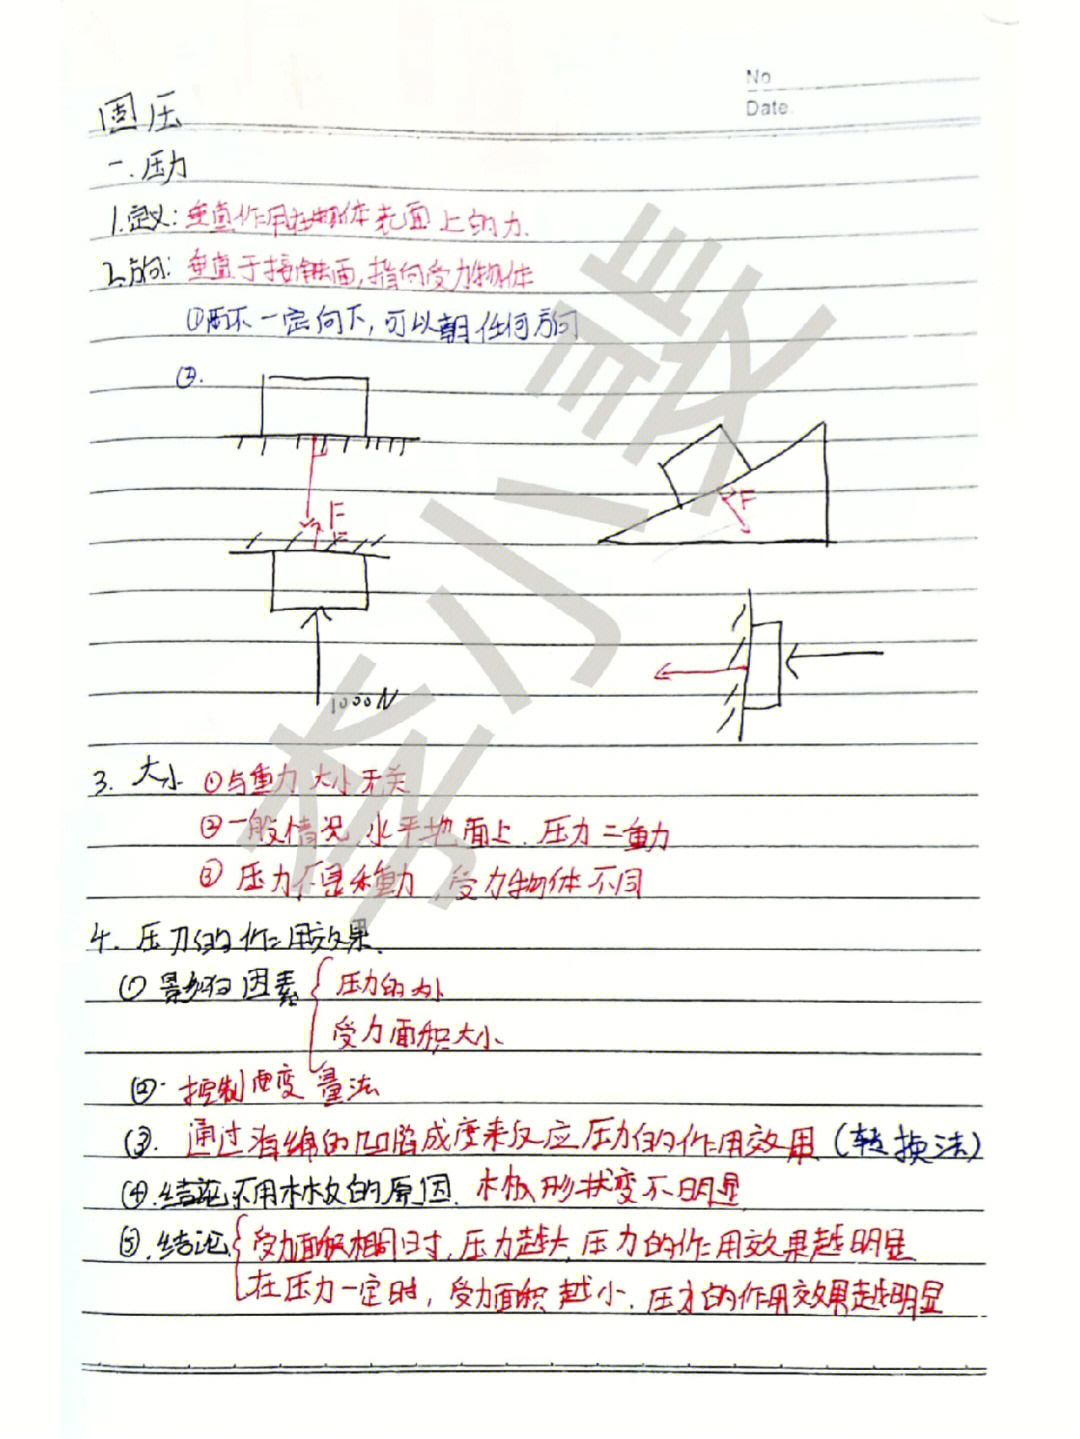 No
Date.
固压
一.压力
1.定义:垂直作用在物体表面上的力.
2.方向:垂直于接触面,指向受力物体
①不一定向下,可以朝任何方向
②.
F
F
F
1000N
3. 大小 ①与重力大小无关
②一般情况 水平地面上.压力=重力
③压力不是重力,受力物体不同
4. 压力的作用效果.
①影响因素 压力的大小
受力面积大小
②.控制变量法
③.通过海绵的凹陷成度来反应压力的作用效果(转换法)
④.结论不用木板的原因.木板形状变不明显
⑤.结论 受力面积相同时,压力越大,压力的作用效果越明显
在压力一定时,受力面积越小.压力的作用效果越明显
李小裴